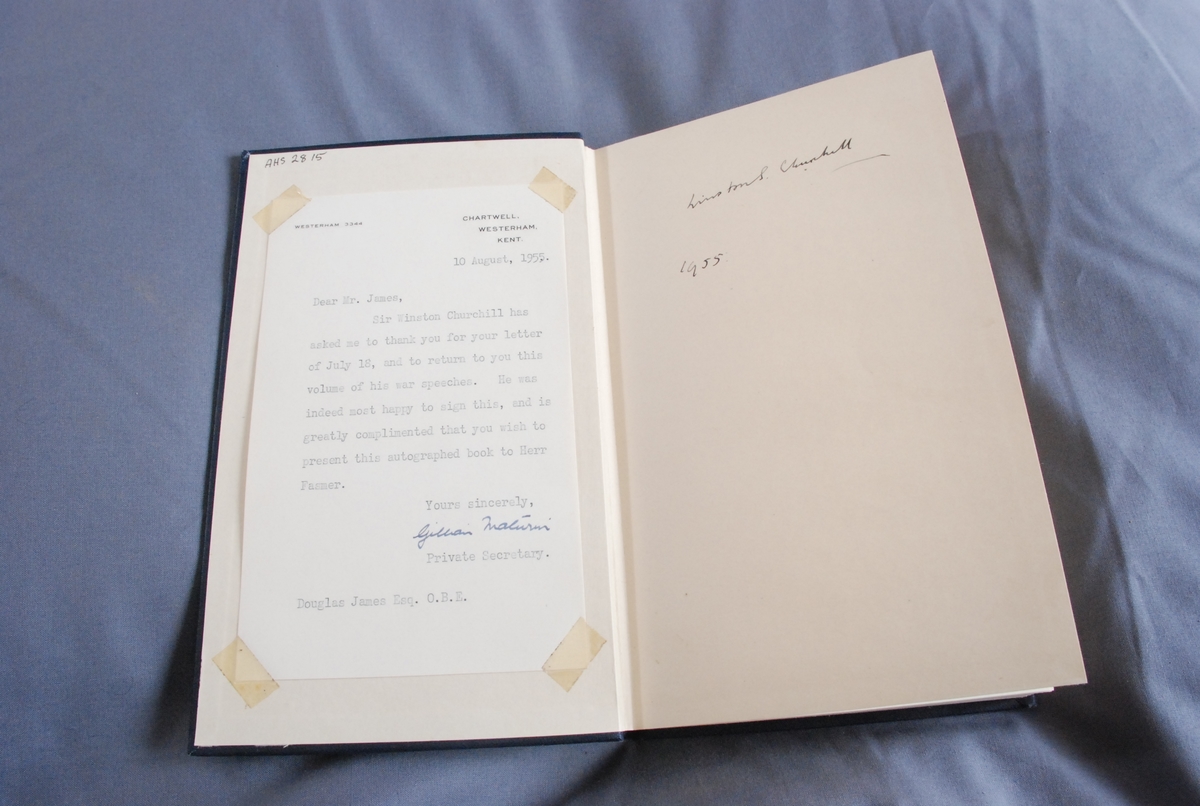 AHS 2815
WESTERHAM 3344
CHARTWELL,
WESTERHAM,
KENT.
10 August, 1955.
Dear Mr. James,
Sir Winston Churchill has
asked me to thank you for your letter
of July 18, and to return to you this
volume of his war speeches. He was
indeed most happy to sign this, and is
greatly complimented that you wish to
present this autographed book to Herr
Fasner.
Yours sincerely,
Gillian Maturin
Private Secretary.
Douglas James Esq. O.B.E.
Winston S. Churchill
1955